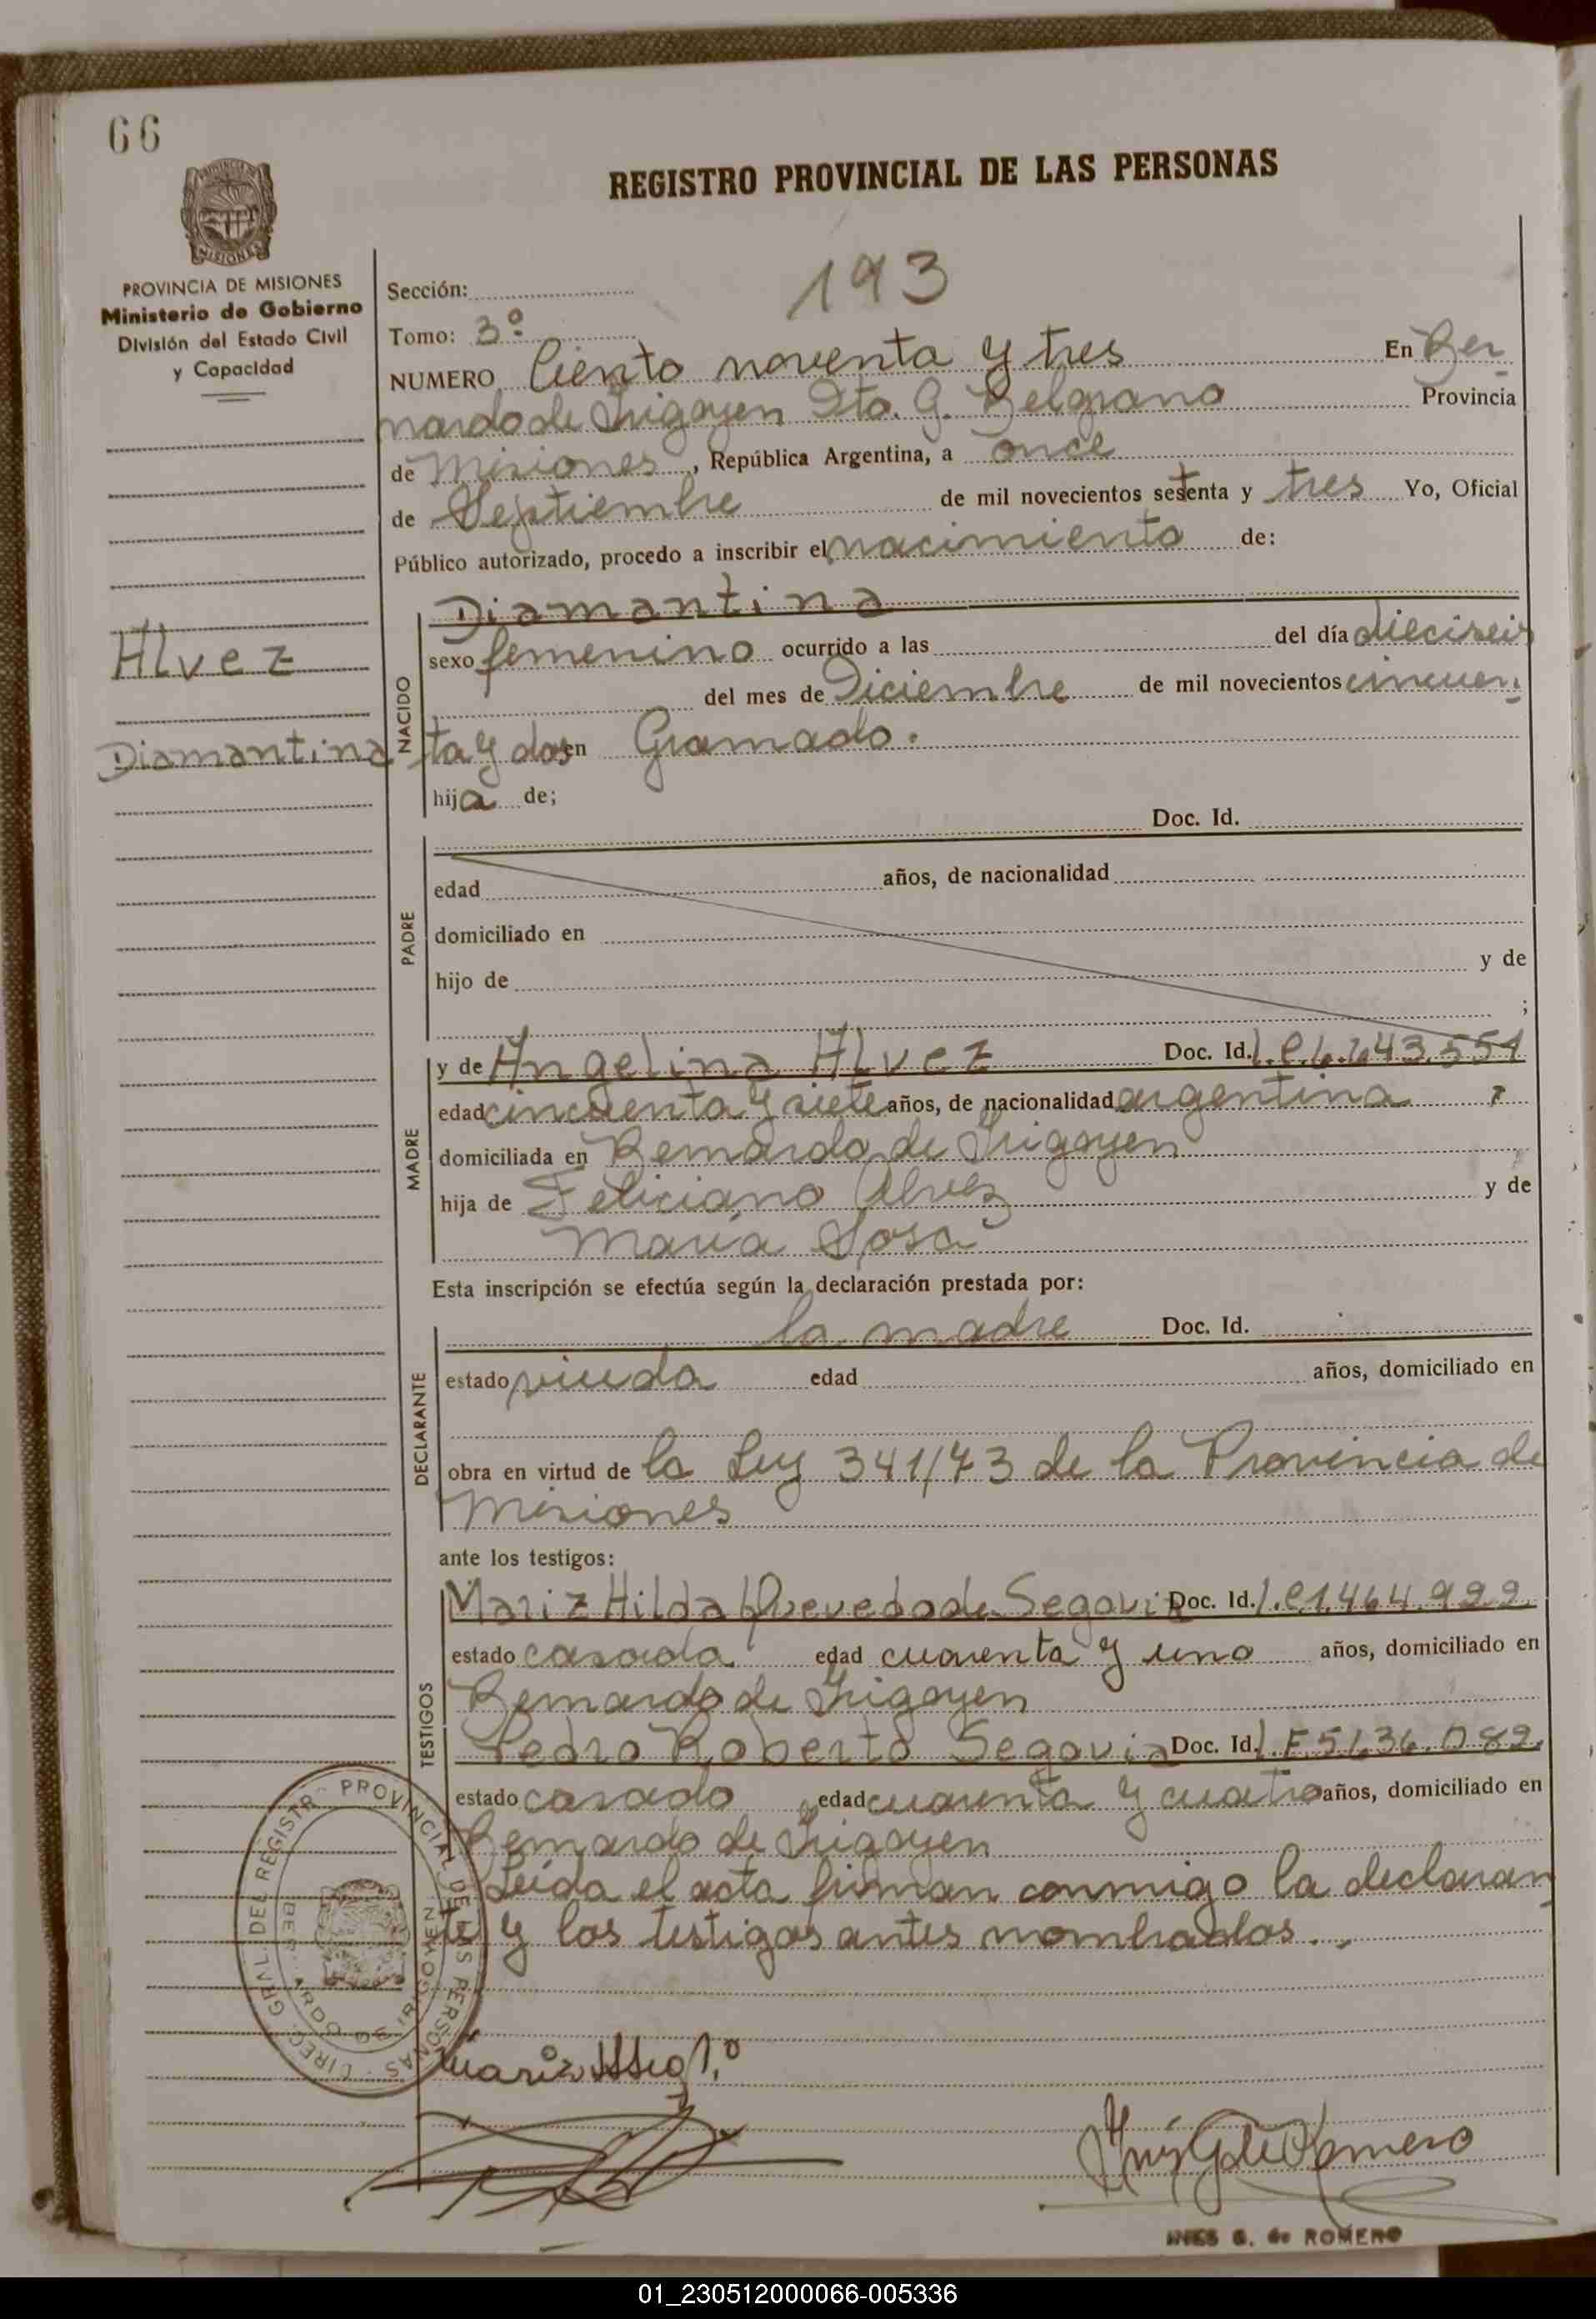 66
REGISTRO PROVINCIAL DE LAS PERSONAS
PROVINCIA DE MISIONES
Ministerio de Gobierno
División del Estado Civil
y Capacidad
Alvez
Diamantina
193
Sección:
Tomo: 3º
NUMERO Ciento noventa y tres En Ber
nardo de Irigoyen Dto. G. Belgrano Provincia
de Misiones, República Argentina, a once
de Septiembre de mil novecientos setenta y tres Yo, Oficial
Público autorizado, procedo a inscribir el nacimiento de:
NACIDO
Diamantina
sexo femenino ocurrido a las del día dieciseis
del mes de Diciembre de mil novecientos cincuen
ta y dos en Gramado.
hija de;
PADRE
Doc. Id.
edad años, de nacionalidad
domiciliado en
hijo de y de
;
MADRE
y de Angelina Alvez Doc. Id. L.C. 6.643.551
edad cincuenta y siete años, de nacionalidad argentina
domiciliada en Bernardo de Irigoyen
hija de Feliciano Alvez y de
María Sosa
Esta inscripción se efectúa según la declaración prestada por:
DECLARANTE
la madre Doc. Id.
estado viuda edad años, domiciliado en
obra en virtud de la Ley 341/73 de la Provincia de
Misiones
ante los testigos:
TESTIGOS
Maria Hilda Quevedo de Segovia Doc. Id. L.C 1.464.999
estado casada edad cuarenta y uno años, domiciliado en
Bernardo de Irigoyen
Pedro Roberto Segovia Doc. Id. L.E 5.636.089
estado casado edad cuarenta y cuatro años, domiciliado en
Bernardo de Irigoyen
Leida el acta firman conmigo la declaran
te y los testigos antes nombrados..
DIREC. GRAL. DEL REGISTR PROVINCIAL DE LAS PERSONAS
BERNARDO DE IRIGOYEN
INES G. de ROMERO
01_230512000066-005336